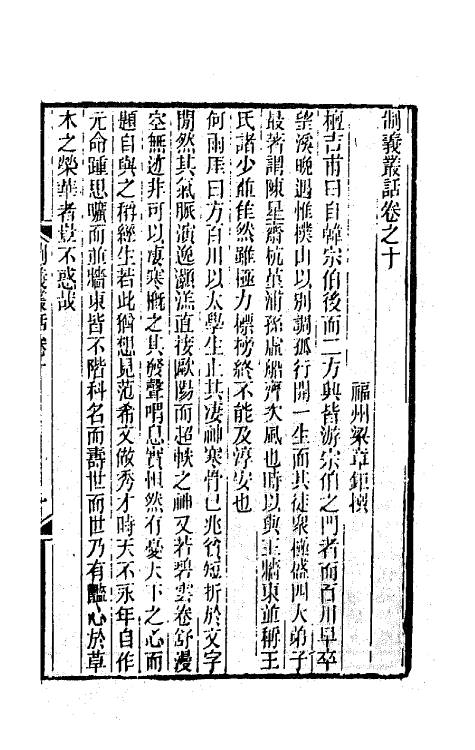 制義叢話卷之十
福州梁章鉅撰
檀吉甫曰自韓宗伯後而二方興皆游宗伯之門者而百川早卒
望溪晚遇惟樸山以別調孤行開一生而其徒眾極盛四大弟子
最著謂陳星齋杭菫浦孫虛船齊次風也時以與王牆東並稱王
氏諸少雖佳然雖極力標榜終不能及淳安也
何雨厓曰方百川以太學生止其凄神寒骨已兆貧短折於文字
間然其氣脈演逸灝溔直接歐陽而超軼之神又若碧雲卷舒漫
空無迹非可以凄寒概之其發聲喟息實惻然有憂天下之心而
題自與之稱經生若此猶想見范希文做秀才時天不永年自作
元命踵思曠而並牆東皆不階科名而壽世而世乃有豔心於草
木之榮華者豈不惑哉
制義叢話 卷十